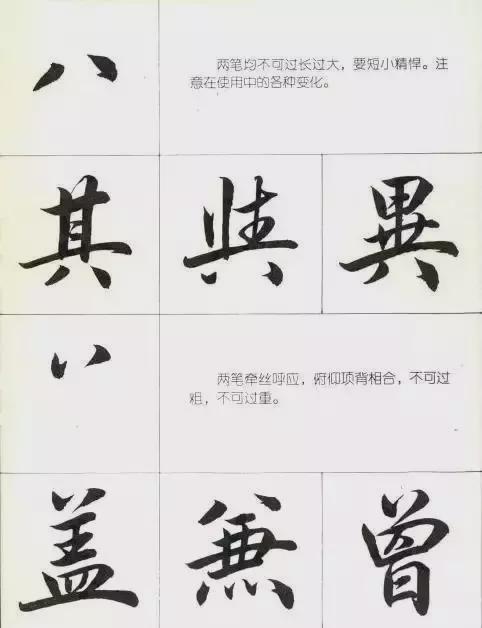 八
两笔均不可过长过大，要短小精悍。注
意在使用中的各种变化。
其 異
丷
两笔牵丝呼应，俯仰项背相合，不可过
粗，不可过重。
盖 兼 曾